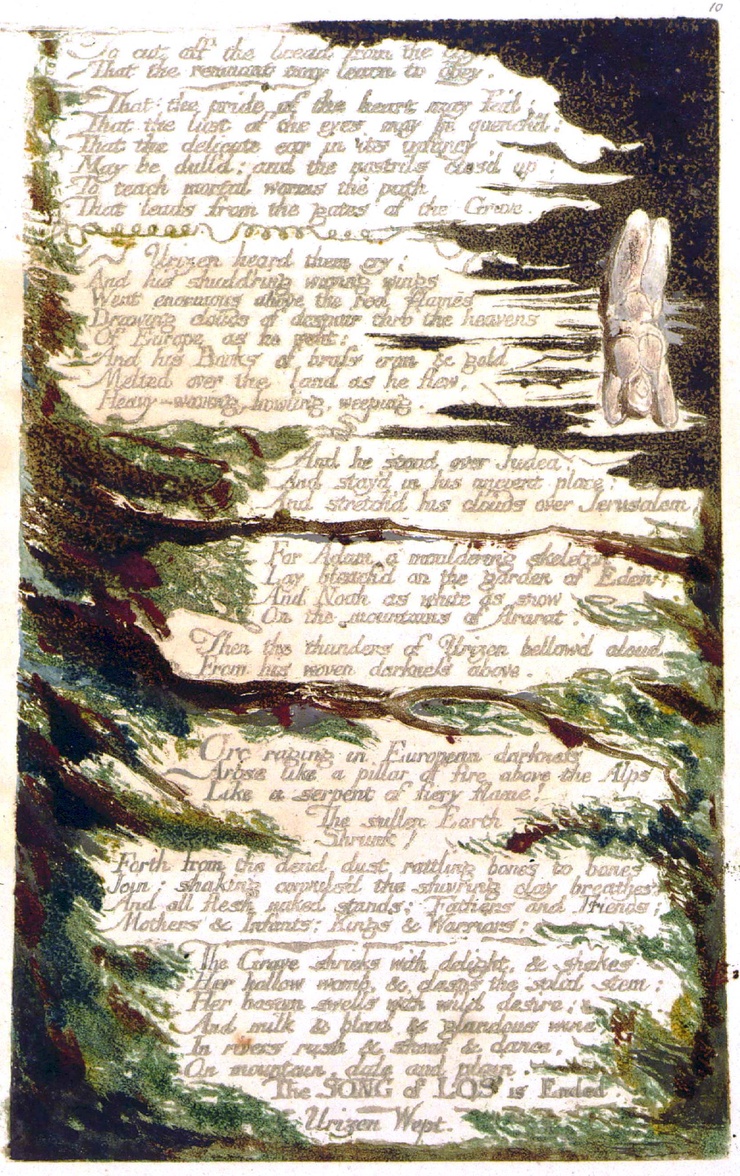 10
To cut off the bread from the city,
That the remnant may learn to obey.
That the pride of the heart may fail;
That the lust of the eyes may be quench'd:
That the delicate ear in its infancy
May be dull'd; and the nostrils clos'd up;
To teach mortal worms the path
That leads from the gates of the Grave.
Urizen heard them cry;
And his shudd'ring waving wings
Went enormous above the red flames
Drawing clouds of despair thro' the heavens
Of Europe as he went:
And his Books of brass iron & gold
Melted over the land as he flew,
Heavy-waving, howling, weeping.
And he stood over Judea:
And stay'd in his ancient place:
And stretch'd his clouds over Jerusalem;
For Adam, a mouldering skeleton
Lay bleach'd on the garden of Eden;
And Noah as white as snow
On the mountains of Ararat.
Then the thunders of Urizen bellow'd aloud
From his woven darkness above.
Orc raging in European darkness
Arose like a pillar of fire above the Alps
Like a serpent of fiery flame!
The sullen Earth
Shrunk!
Forth from the dead dust rattling bones to bones
Join: shaking convuls'd the shivring clay breathes
And all flesh naked stands: Fathers and Friends;
Mothers & Infants; Kings & Warriors:
The Grave shrieks with delight, & shakes
Her hollow womb, & clasps the solid stem:
Her bosom swells with wild desire:
And milk & blood & glandous wine
In rivers rush & shout & dance,
On mountain, dale and plain.
The SONG of LOS is Ended.
Urizen Wept.